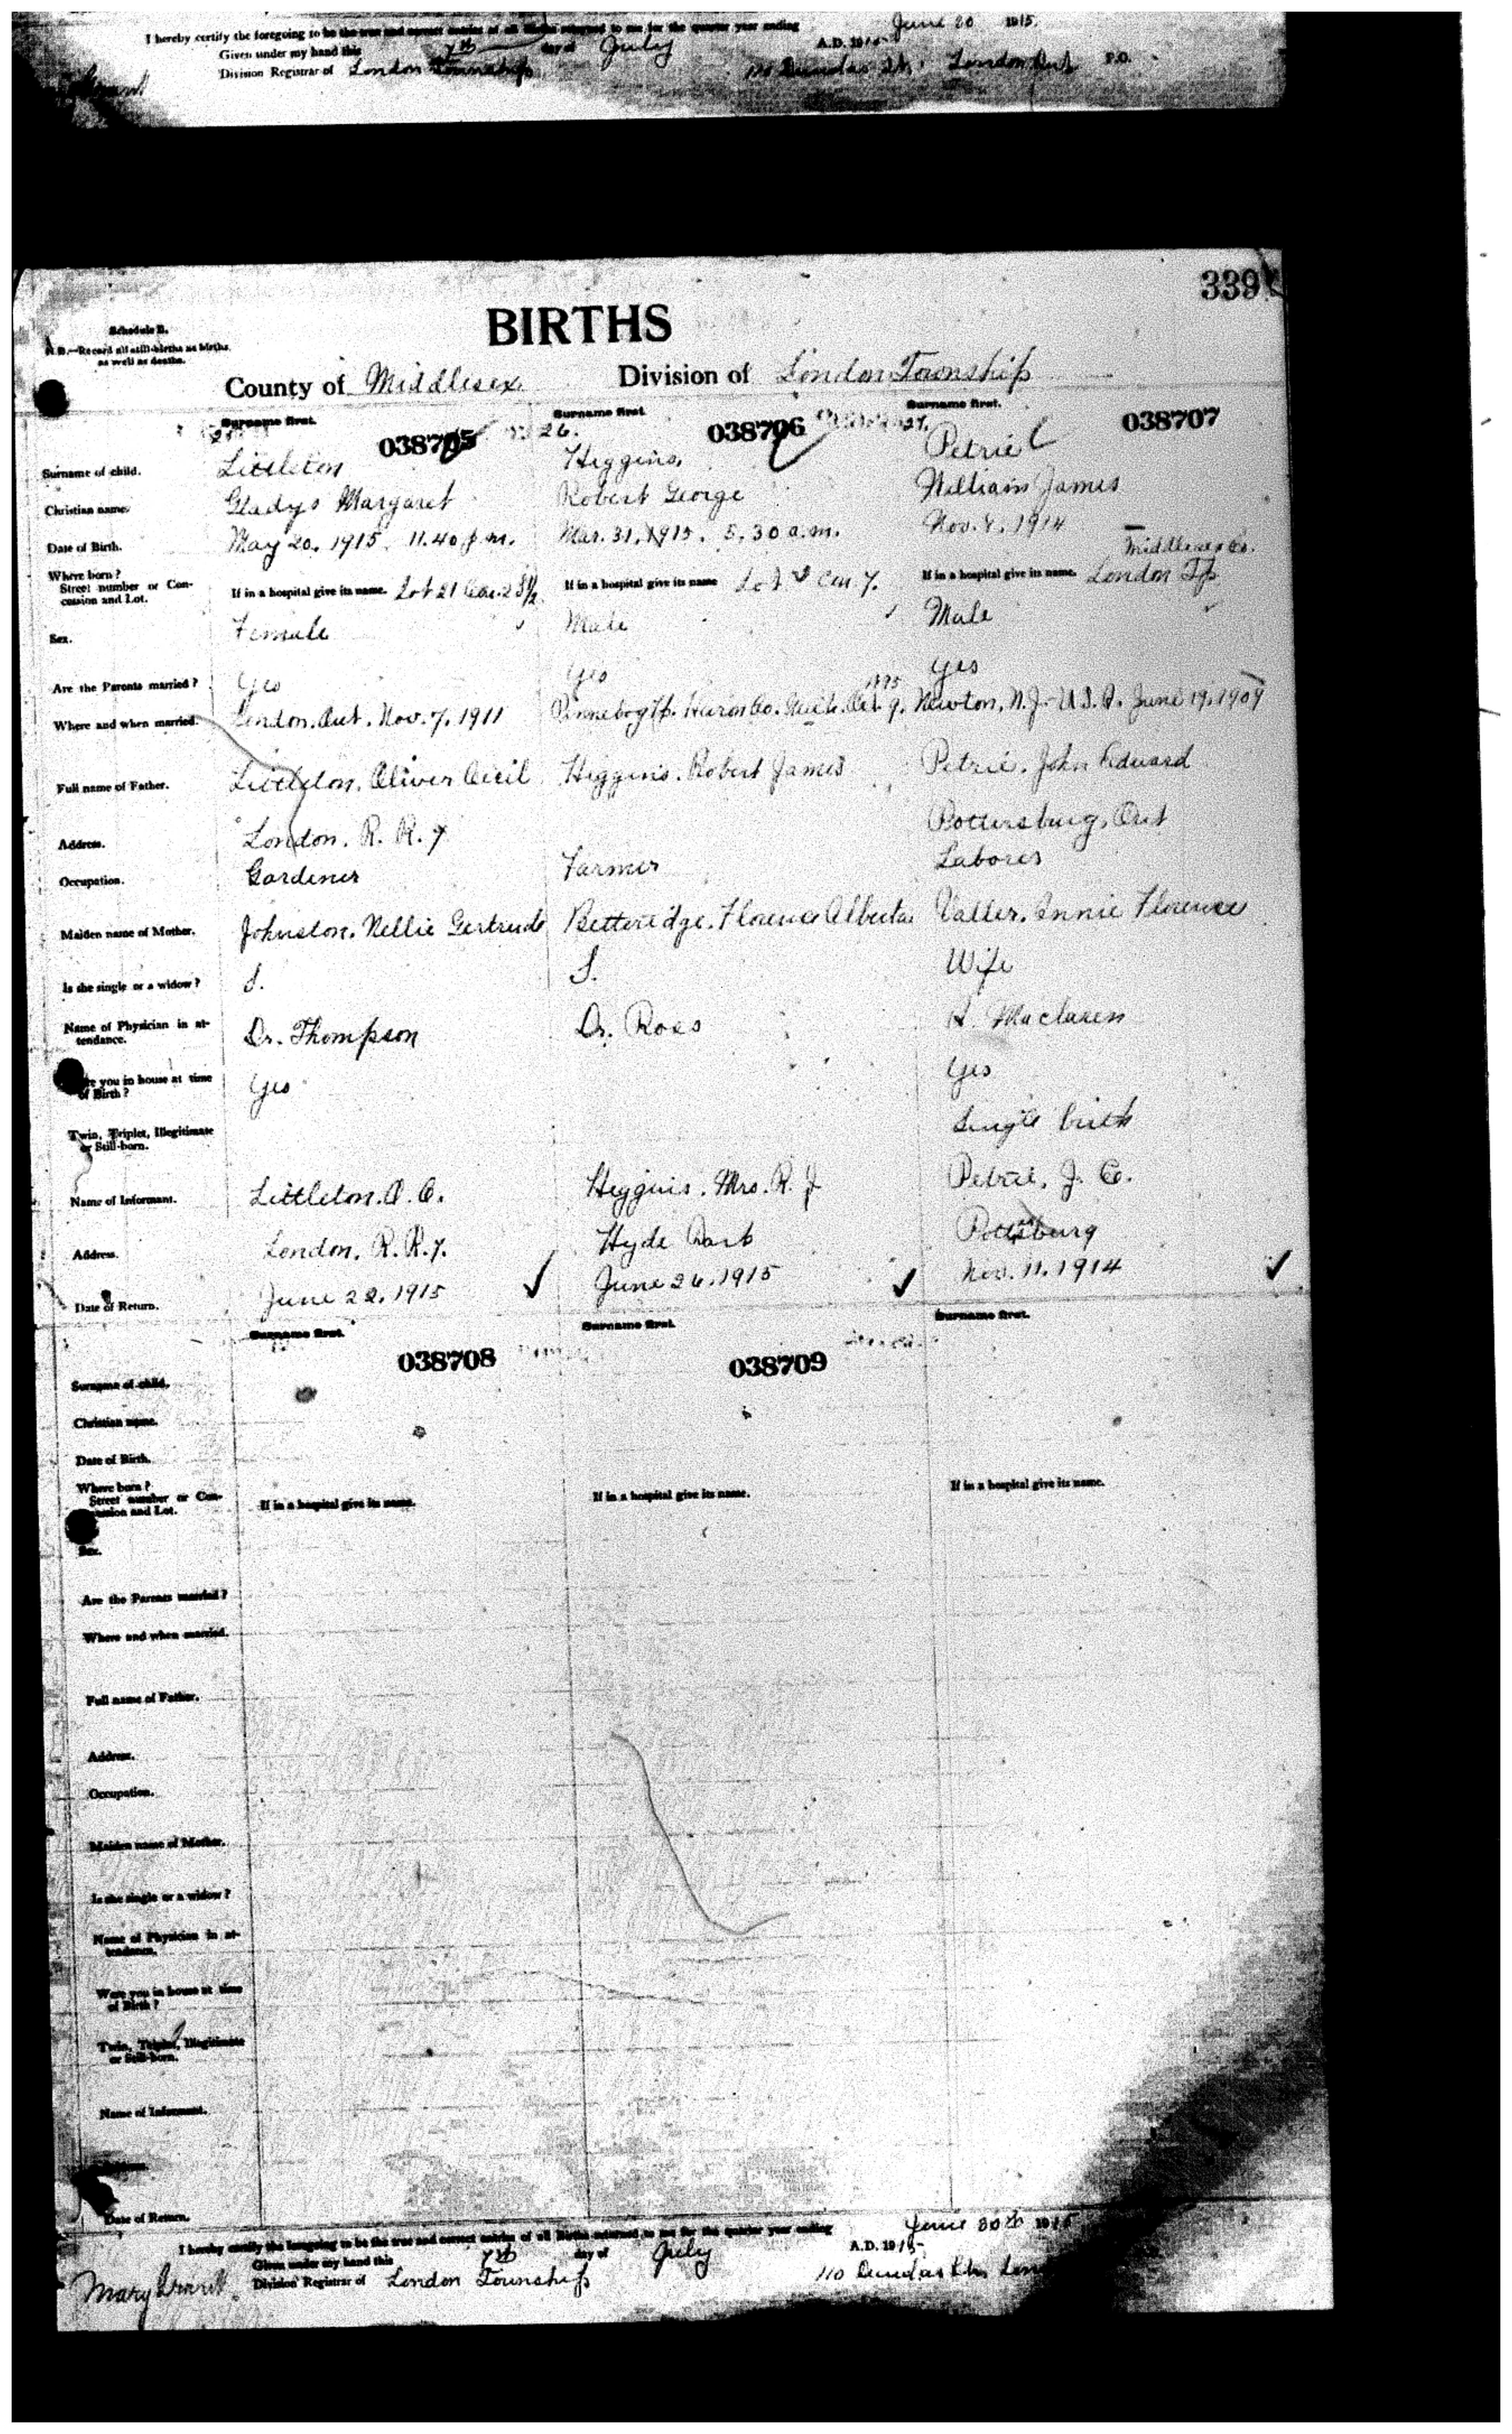 I hereby certify the foregoing to be the true and correct entries of all Births returned to me for the quarter year ending June 30 1915.
Given under my hand this 7th day of July A.D. 1915
Division Registrar of London Township 110 Dundas St. London Ont P.O.
339
Schedule B.
N.B.—Record all still-births as births as well as deaths.
BIRTHS
County of Middlesex Division of London Township
Surname first. Surname first. Surname first.
038705 26. 038706 27. 038707
Surname of child. Littleton Higgins. Petrie
Christian name. Gladys Margaret Robert George William James
Date of Birth. May 20, 1915. 11.40 p.m. Mar. 31, 1915. 5.30 a.m. Nov. 8, 1914
Middlesex Co.
Where born? Street number or Concession and Lot. If in a hospital give its name. Lot 21 Con. 2 S½ If in a hospital give its name Lot Con 7. If in a hospital give its name. London Tp
Sex. Female Male Male
Are the Parents married? Yes Yes Yes
Where and when married. London, Ont. Nov. 7, 1911 Pinnebog Tp. Huron Co. Mich. Oct. 9, 1895 Newton, N.J. U.S.A. June 19, 1909
Full name of Father. Littleton, Oliver Cecil Higgins. Robert James Petrie, John Edward
Address. London. R. R. 7 Pottersburg, Ont
Occupation. Gardener Farmer Laborer
Maiden name of Mother. Johnston, Nellie Gertrude Betteridge, Florence Alberta Valler, Annie Florence
Is she single or a widow? S. S. Wife
Name of Physician in attendance. Dr. Thompson Dr. Ross Maclaren
Were you in house at time of Birth? Yes Yes
Twin, Triplet, Illegitimate or Still-born. Single birth
Name of Informant. Littleton. O. C. Higgins. Mrs. R. J. Petrie, J. E.
Address. London, R. R. 7. Hyde Park Pottersburg
Date of Return. June 22, 1915 June 26, 1915 Nov. 11, 1914
Surname first. Surname first. Surname first.
038708 038709
Surname of child.
Christian name.
Date of Birth.
Where born? Street number or Concession and Lot. If in a hospital give its name. If in a hospital give its name. If in a hospital give its name.
Sex.
Are the Parents married?
Where and when married.
Full name of Father.
Address.
Occupation.
Maiden name of Mother.
Is she single or a widow?
Name of Physician in attendance.
Were you in house at time of Birth?
Twin, Triplet, Illegitimate or Still-born.
Name of Informant.
Date of Return.
I hereby certify the foregoing to be the true and correct entries of all Births returned to me for the quarter year ending June 30th 1915
Given under my hand this 7th day of July A.D. 1915
Mary Division Registrar of London Township 110 Dundas St.